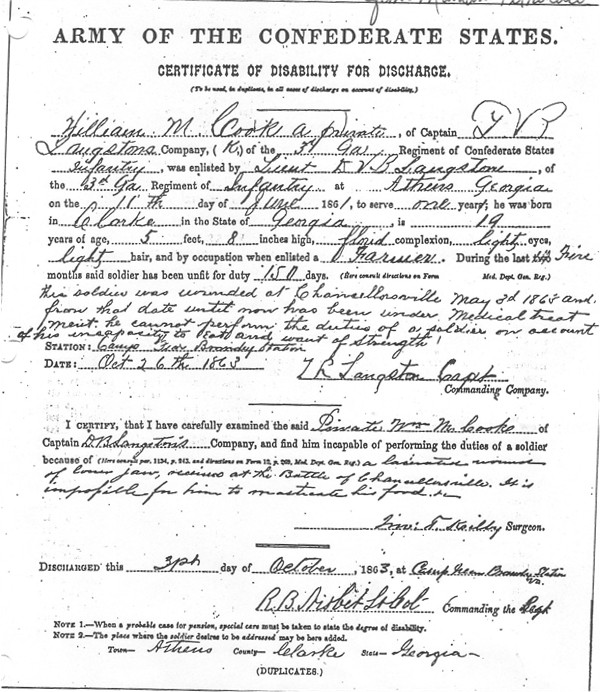 ARMY OF THE CONFEDERATE STATES.
CERTIFICATE OF DISABILITY FOR DISCHARGE.
(To be used, in duplicate, in all cases of discharge on account of disability.)
William M Cook a private, of Captain
Langstons Company, (K) of the 3d Ga Regiment of Confederate States
Infantry, was enlisted by Lieut D V B Langston, of
the 3rd Ga Regiment of Infantry at Athens Georgia
on the 11th day of June 1861, to serve one years; he was born
in Clarke in the State of Georgia, is 19
years of age, 5 feet, 8 inches high, florid complexion, light eyes,
light hair, and by occupation when enlisted a Farmer. During the last two Five
months said soldier has been unfit for duty 150 days. (Here consult directions on Form Med. Dept. Gen. Reg.)
This soldier was wounded at Chancellorsville May 3d 1863 and
from that date until now has been under Medical treat
ment. he cannot perform the duties of a soldier on account
of his incapacity to eat and want of strength!
STATION: Camp near Brandy Station
DATE: Oct 26th 1863
Langston Capt
Commanding Company.
I CERTIFY, that I have carefully examined the said Private Wm M. Cooke of
Captain D.B. Langston's Company, and find him incapable of performing the duties of a soldier
because of (Here consult par. 1134, p. 243, and directions on Form 12, p. 269, Med. Dept. Gen. Reg.) a lacerated wound
of lower jaw received at the Battle of Chancellorsville. It is
impossible for him to masticate his food.
Surgeon.
DISCHARGED this day of October, 1863, at Camp Near Brandy Station
Va.
R. B. Nisbet Lt Col Commanding the Regt
NOTE 1.—When a probable case for pension, special care must be taken to state the degree of disability.
NOTE 2.—The place where the soldier desires to be addressed may be here added.
Town— Athens County— Clarke State— Georgia—
(DUPLICATES.)